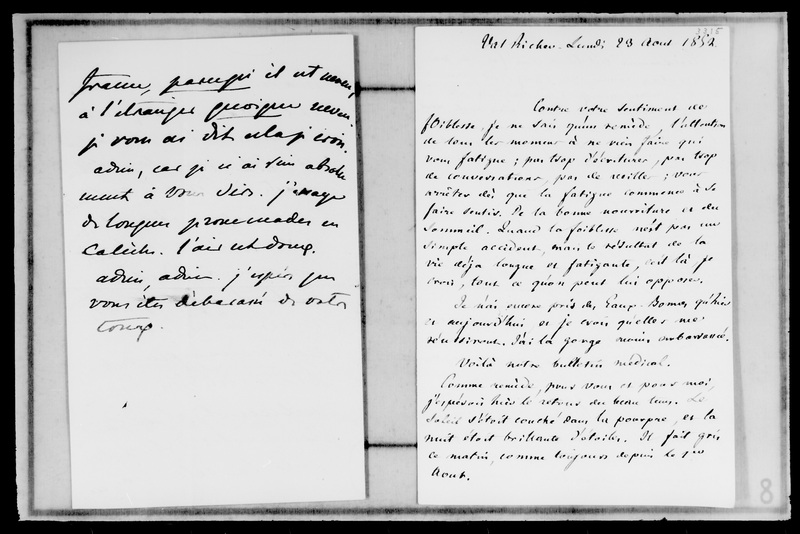 france, parceque il est venu,
à l'étranger quoique venu.
je vous ai dit cela je crois.
adieu, car je n'ai rien absolu
ment à vous dire. j'essaye
de longues promenades en
calèche. l'air est doux.
adieu, adieu. j'espère que
vous êtes débarassé de votre
toux.
Val Richer. Lundi 23 Aout 1852
Contre votre sentiment de
foiblesse je ne sais qu'un remède, l'attention
de tous les moments à ne rien faire qui
vous fatigue ; pas trop d'écritures, pas trop
de conversations, pas de veilles ; vous
arrêter dès que la fatigue commence à se
faire sentir. De la bonne nourriture et du
sommeil. Quand la foiblesse n'est pas un
simple accident, mais le résultat de la
vie déja longue et fatigante, c'est là je
crois, tout ce qu'on peut lui opposer.
Je n'ai encore pris des Eaux Bonnes qu'hier
et aujourd'hui et je crois qu'elles me
réussiront. J'ai la gorge moins embarrassée.
Voilà notre bulletin médical.
Comme remède, pour vous et pour moi,
j'espérois hier le retour du beau tems. Le
soleil s'étoit couché dans la pourpre, et la
nuit étoit brillante d'étoiles. Il fait gris
ce matin, comme toujours depuis le 1er
Aout.
8